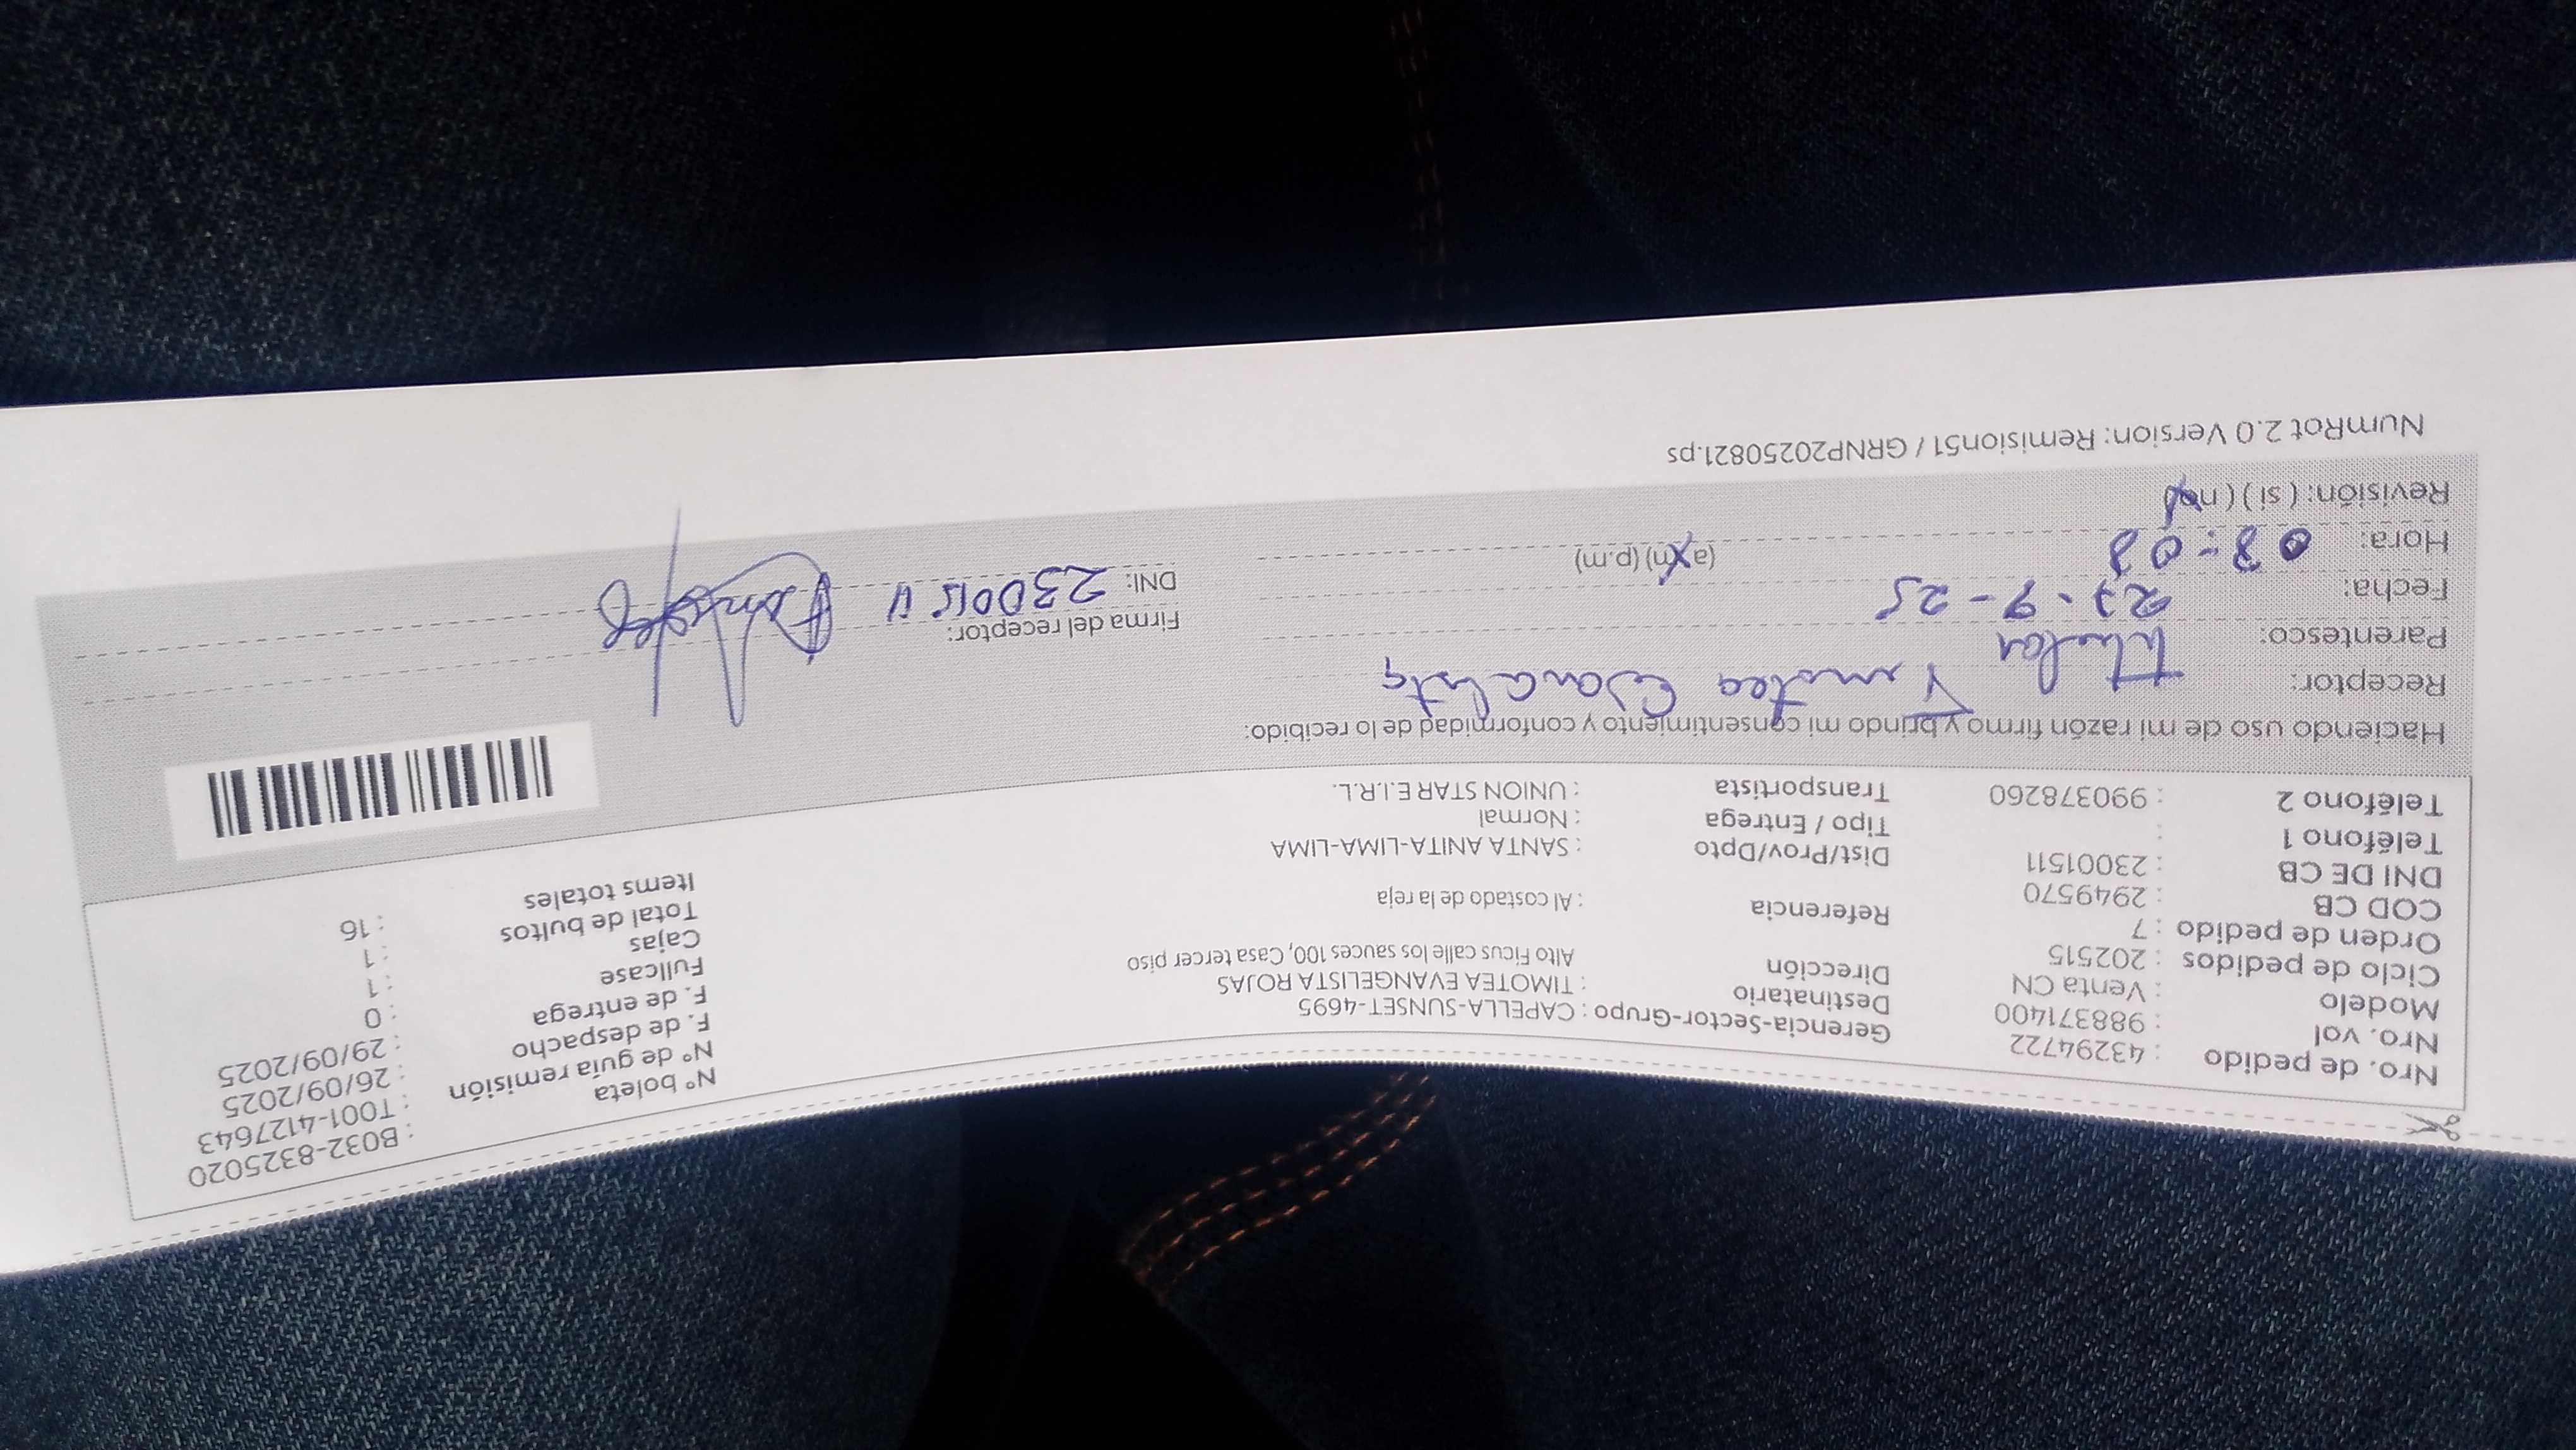 Nro. de pedido : 43294722
Nro. vol : 988371400
Modelo : Venta CN
Ciclo de pedidos : 202515
Orden de pedido : 7
COD CB : 2949570
DNI DE CB : 23001511
Teléfono 1 :
Teléfono 2 : 990378260
Gerencia-Sector-Grupo : CAPELLA-SUNSET-4695
Destinatario : TIMOTEA EVANGELISTA ROJAS
Dirección Alto Ficus calle los sauces 100, Casa tercer piso
Referencia : Al costado de la reja
Dist/Prov/Dpto : SANTA ANITA-LIMA-LIMA
Tipo / Entrega : Normal
Transportista : UNION STAR E.I.R.L.
N° boleta : B032-8325020
N° de guía remisión : T001-4127643
F. de despacho : 26/09/2025
F. de entrega : 29/09/2025
Fullcase : 0
Cajas : 1
Total de bultos : 1
Items totales : 16
Haciendo uso de mi razón firmo y brindo mi consentimiento y conformidad de lo recibido:
Receptor: Timotea
Parentesco: titular
Fecha: 27-9-25
Hora: 08:08 (a.m) (p.m)
Revisión: ( si ) ( no )
Firma del receptor:
DNI: 23001511
NumRot 2.0 Version: Remision51 / GRNP20250821.ps